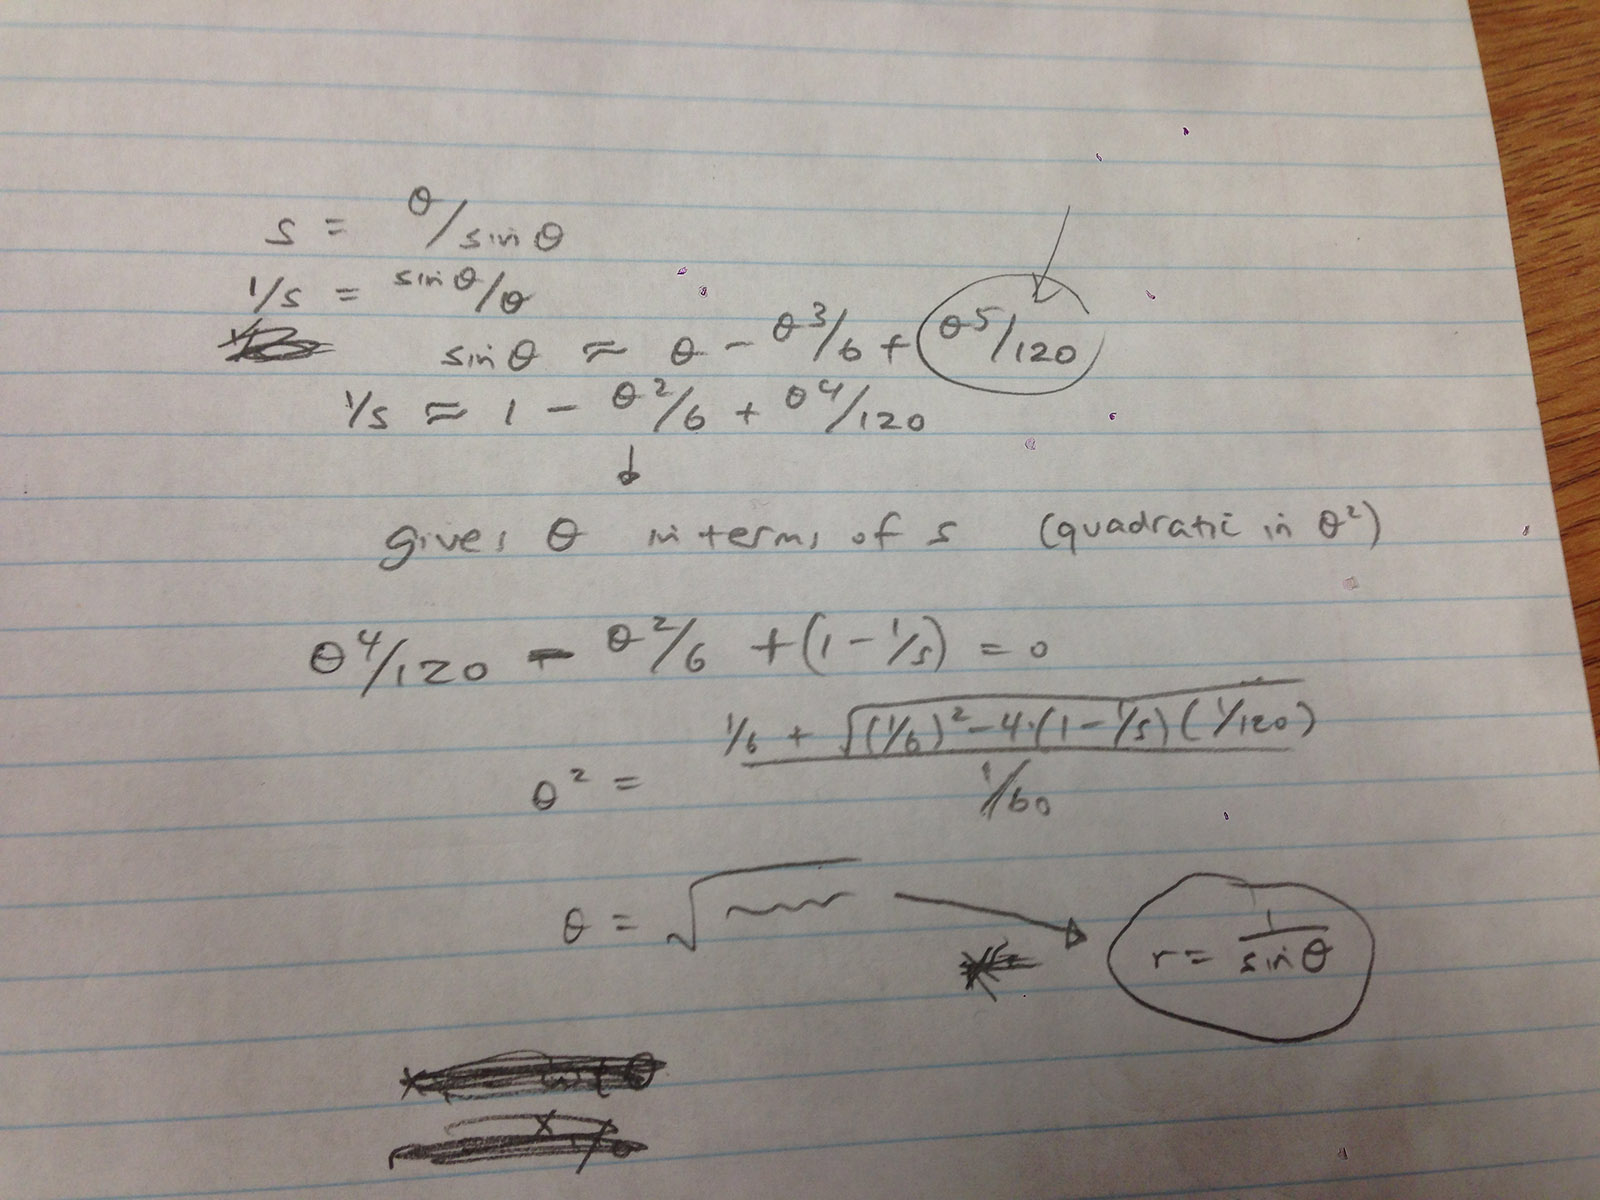 s = θ/sin θ
1/s = sin θ/θ
sin θ ≈ θ - θ³/6 + θ⁵/120
1/s ≈ 1 - θ²/6 + θ⁴/120
↓
gives θ in terms of s (quadratic in θ²)
θ⁴/120 - θ²/6 + (1 - 1/s) = 0
θ² = (1/6 + √((1/6)² - 4·(1 - 1/s)(1/120))) / (1/60)
θ = √ → r = 1/sin θ